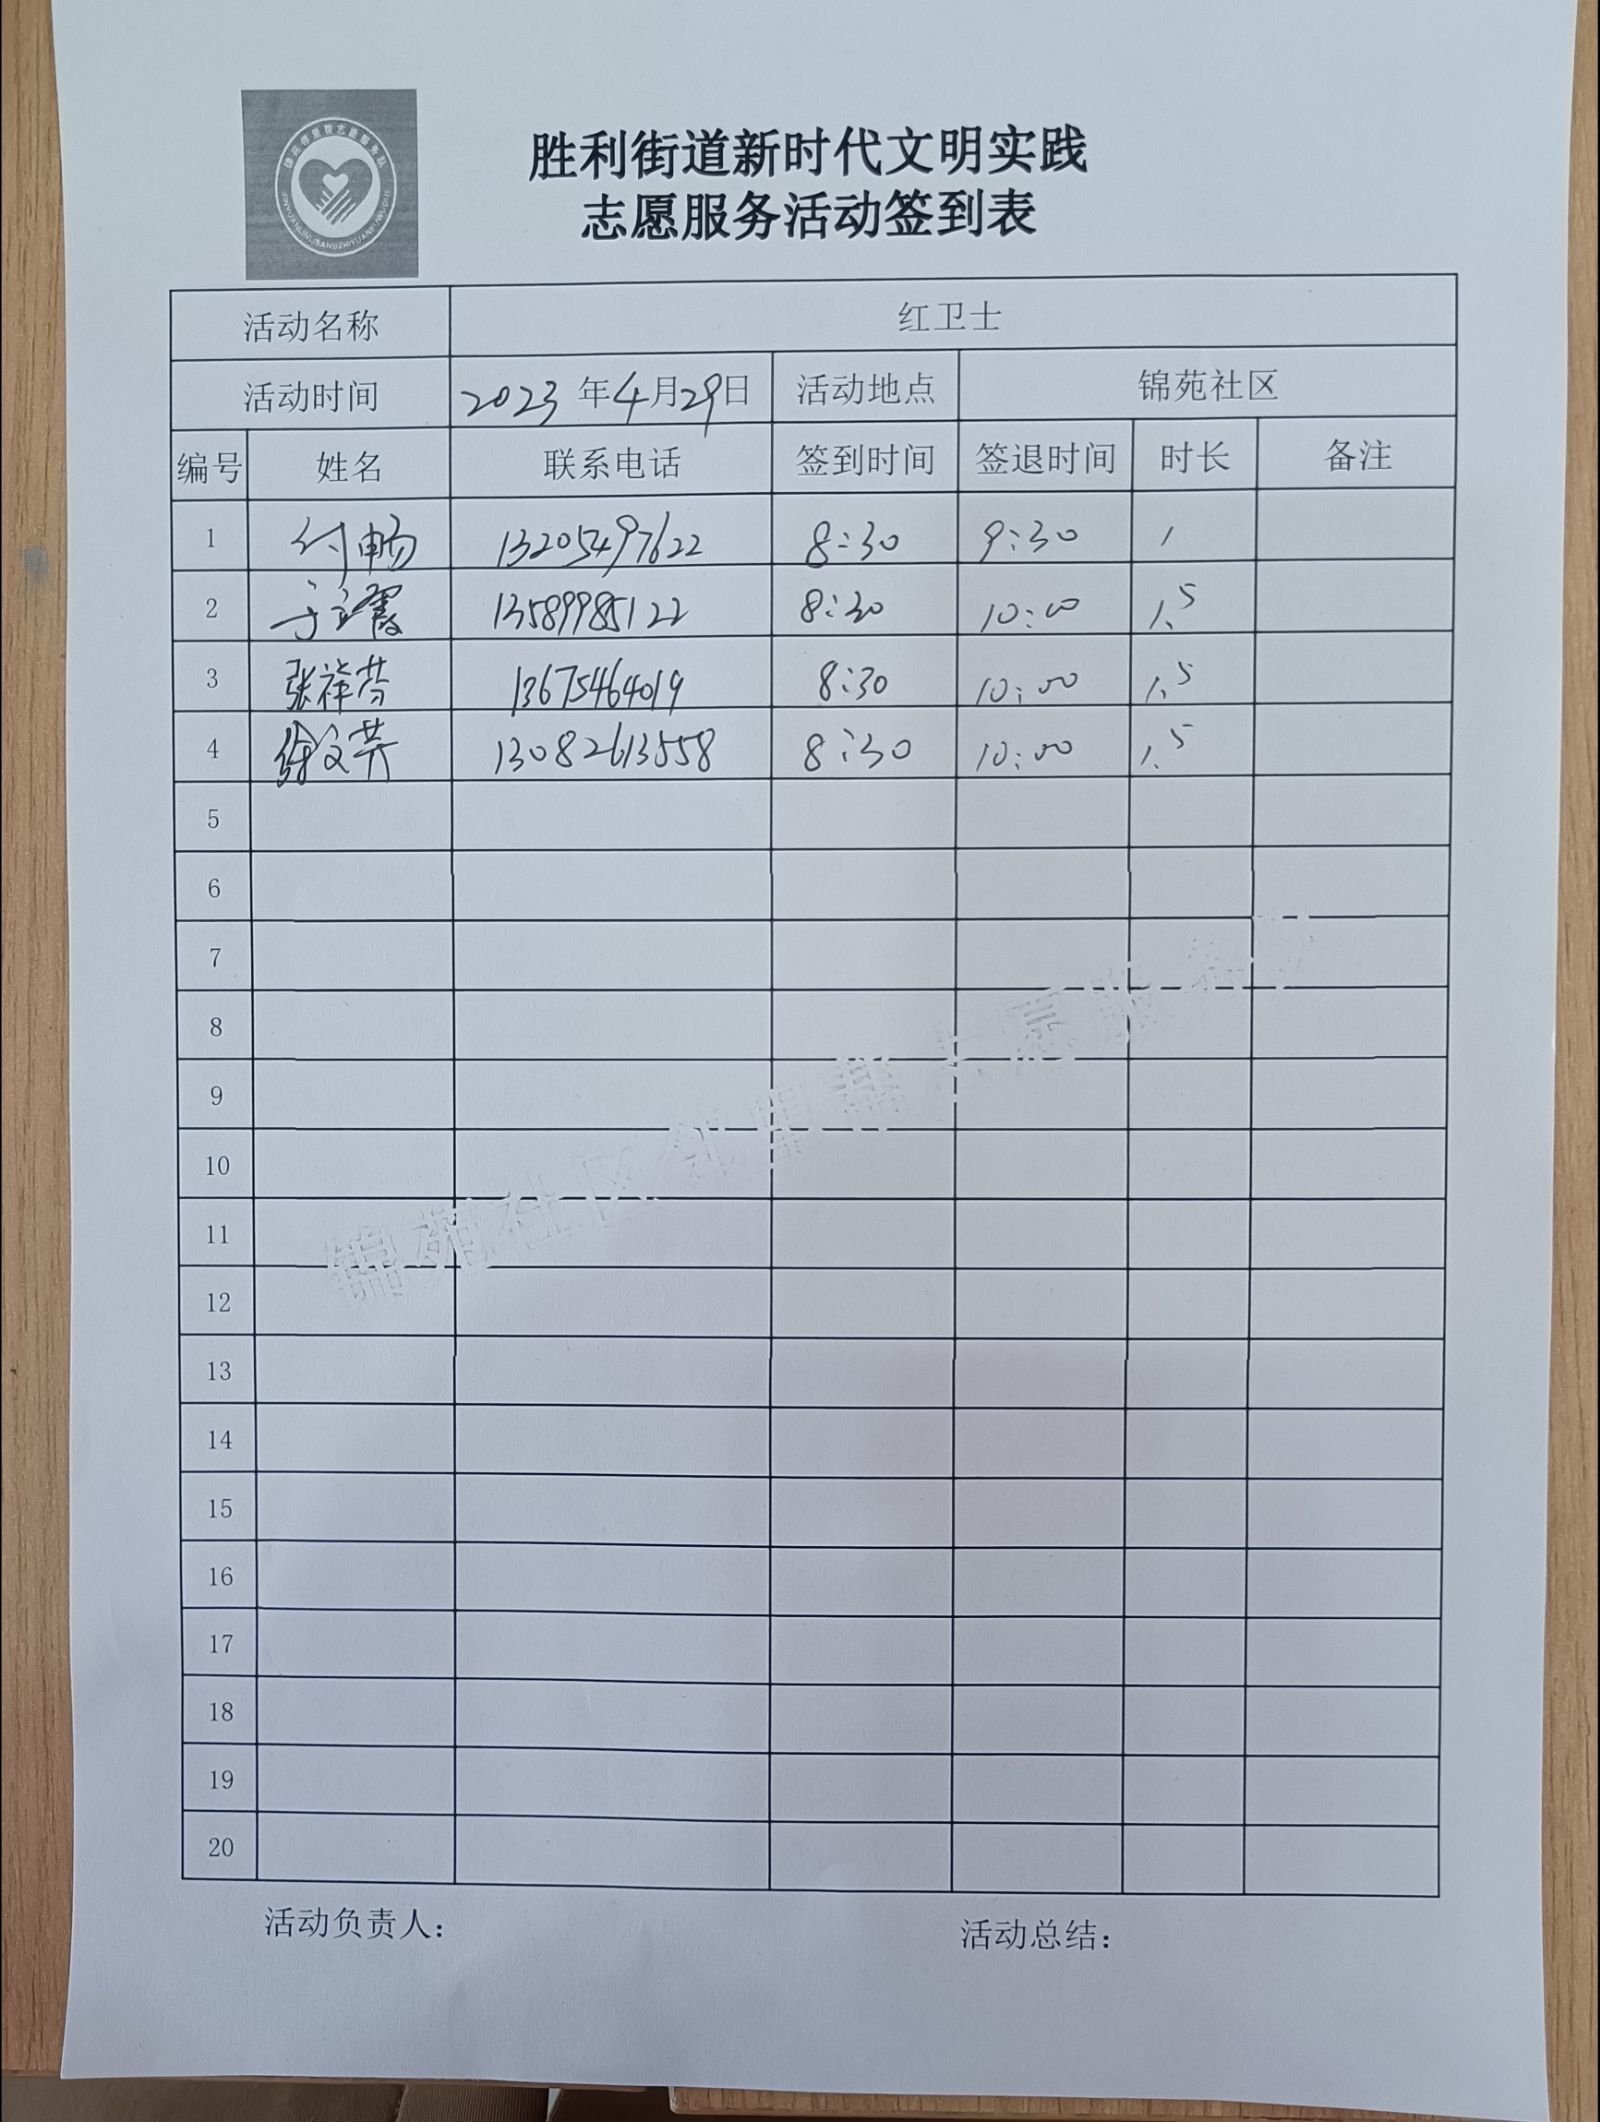 胜利街道新时代文明实践
志愿服务活动签到表
活动名称 红卫士
活动时间 2023 年 4 月 29 日 活动地点 锦苑社区
编号 姓名 联系电话 签到时间 签退时间 时长 备注
1 付畅 13205497622 8:30 9:30 1
2 于立霞 13589985122 8:30 10:00 1.5
3 张祥芬 13675464019 8:30 10:00 1.5
4 徐文芹 13082613558 8:30 10:00 1.5
5
6
7
8
9
10
11
12
13
14
15
16
17
18
19
20
锦苑社区邻里帮志愿服务队
活动负责人：
活动总结：